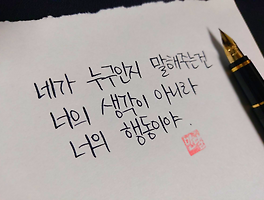 네가 누구인지 말해주는건
너의 생각이 아니라
너의 행동이야.